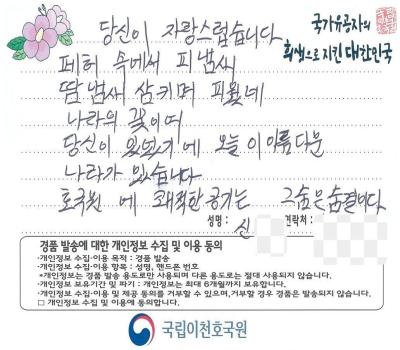 당신이 자랑스럽습니다.
국가유공자의
희생으로 지킨 대한민국
폐허 속에서 피냄새
땀냄새 삼키며 피웠네
나라의 꽃이여
당신이 있었기에 오늘 이 아름다운
나라가 있습니다
호국원에 쾌적한 공기는 그 숨은 숨결이다.
성명 : 신 연락처 :
경품 발송에 대한 개인정보 수집 및 이용 동의
·개인정보 수집·이용 목적 : 경품 발송
·개인정보 수집·이용 항목 : 성명, 핸드폰 번호
*개인정보는 경품 발송 용도로만 사용되며 다른 용도로는 절대 사용되지 않습니다.
·개인정보 보유기간 및 파기 : 개인정보는 최대 6개월까지 보유합니다.
·개인정보 수집·이용 및 제공 동의를 거부할 수 있으며, 거부할 경우 경품은 발송되지 않습니다.
□ 개인정보 수집 및 이용에 동의합니다.
국립이천호국원